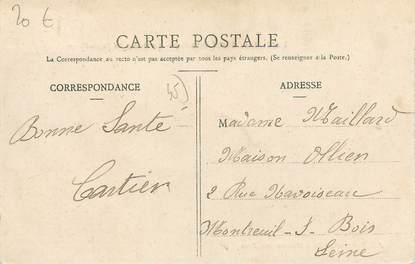 20 €
CARTE POSTALE
La Correspondance au recto n'est pas acceptée par tous les pays étrangers. (Se renseigner à la Poste.)
CORRESPONDANCE
ADRESSE
Bonne Santé
Cartier
Madame Maillard
Maison Ollier
2 Rue Navoiseau
Montreuil-s-Bois
Seine